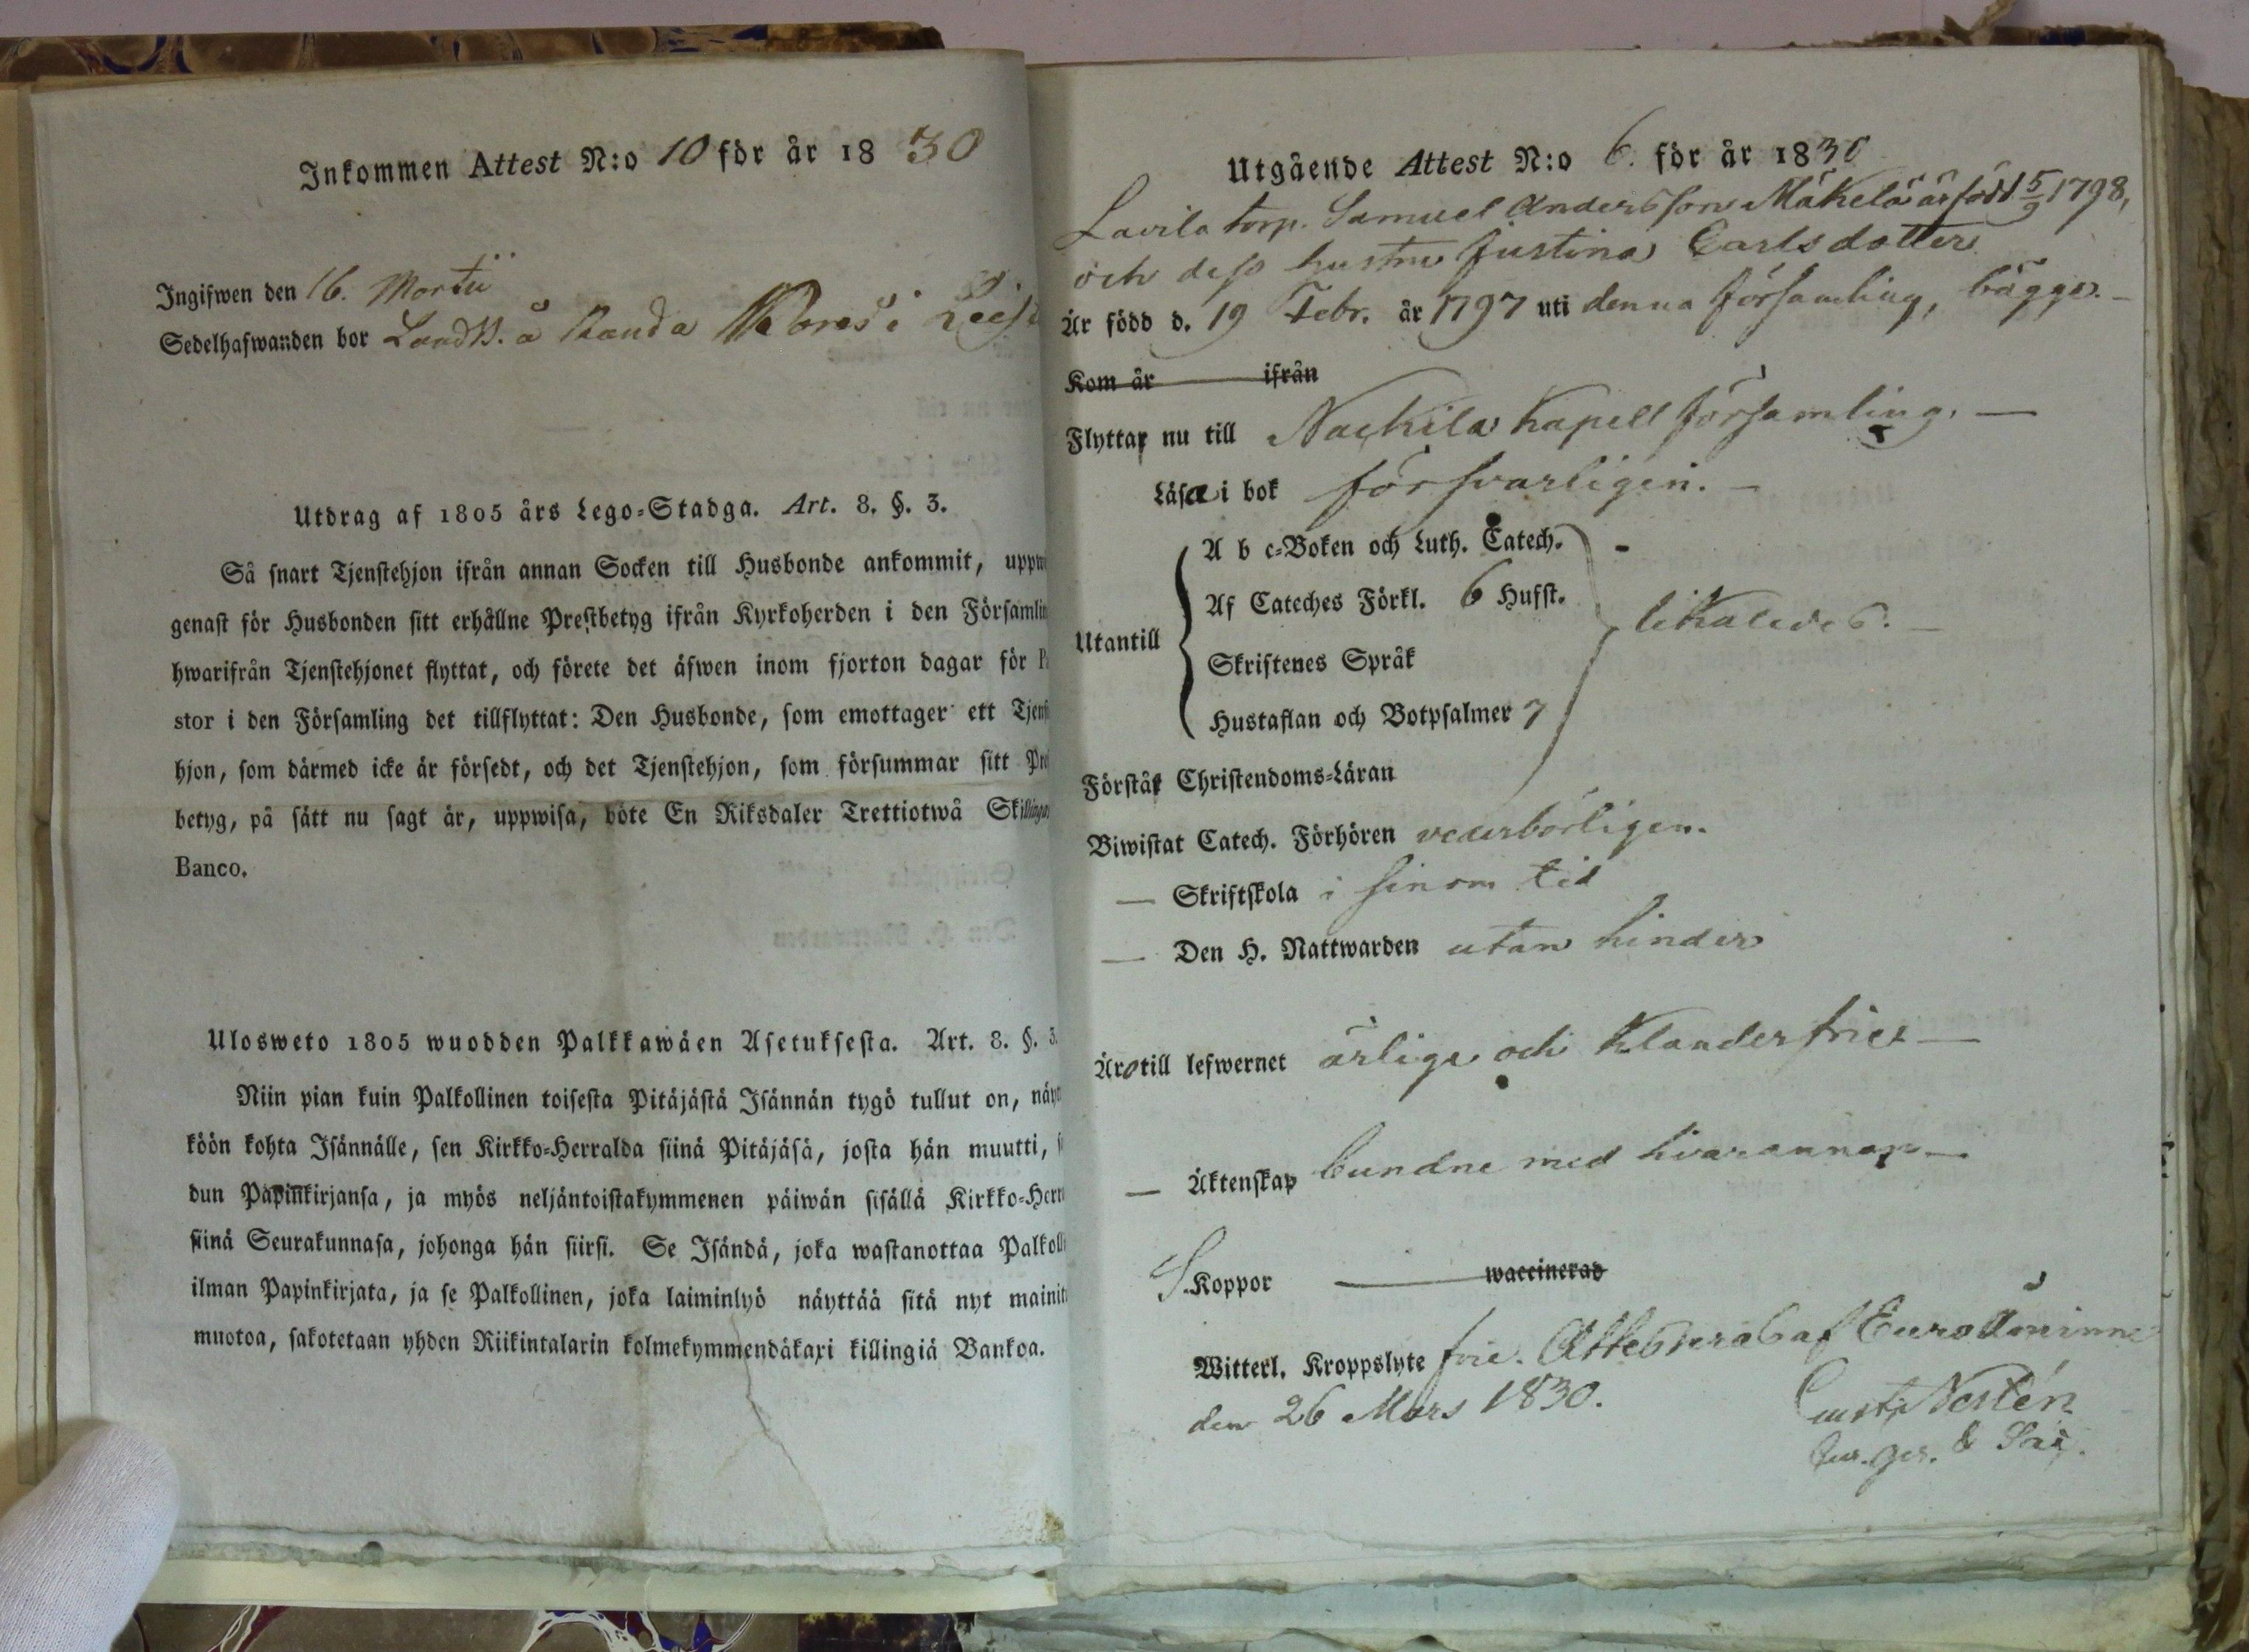 Inkommen Attest N:o 10 för år 1830
Ingifwen den 16. Martii
Sedelhafwanden bor å i
Utdrag af 1805 års Lego-Stadga. Art. 8. §. 3.
Så snart Tjenstehjon ifrån annan Socken till Husbonde ankommit, uppw
genast för Husbonden sitt erhållne Prestbetyg ifrån Kyrkoherden i den Församlin
hwarifrån Tjenstehjonet flyttat, och förete det äfwen inom fjorton dagar för P
stor i den Församling det tillflyttat: Den Husbonde, som emottager ett Tjenst
hjon, som därmed icke är försedt, och det Tjenstehjon, som försummar sitt Pre
betyg, på sätt nu sagt är, uppwisa, böte En Riksdaler Trettiotwå Skillingar
Banco.
Ulosweto 1805 wuodden Palkkawäen Asetuksesta. Art. 8. §. 3.
Niin pian kuin Palkollinen toisesta Pitäjästä Isännän tygö tullut on, näyt
köön kohta Isännälle, sen Kirkko-Herralda siinä Pitäjäsä, josta hän muutti, s
dun Päpinkirjansa, ja myös neljäntoistakymmenen päiwän sisällä Kirkko-Herr
siinä Seurakunnasa, johonga hän siirsi. Se Isändä, joka wastanottaa Palkolli
ilman Papinkirjata, ja se Palkollinen, joka laiminlyö näyttää sitä nyt mainit
muotoa, sakotetaan yhden Riikintalarin kolmekymmendäkaxi killingiä Bankoa.
Utgående Attest N:o 6. för år 1830
Lavila torp. Samuel Andersson Mäkelä är född 5/9 1798,
och dess hustru Justina Carlsdotter
Är född d. 19 Febr. år 1797 uti denna församling, bägge. –
Kom år ifrån
Flyttar nu till Nackila Kapell församling. —
Läsa i bok försvarligen. –
Utantill
A b c-Boken och Luth. Catech.
Af Cateches Förkl. 6 Hufst.
Skriftenes Språk
Hustaflan och Botpsalmer 7
likaledes. –
Förstår Christendoms-Läran
Biwistat Catech. Förhören vederbörligen.
— Skriftskola i sinom tid
— Den H. Nattwarden utan hinder
Äro till lefwernet ärlige och klanderfrie —
— Äktenskap bundne med hvarannan —
S. Koppor — waccinerad
Witterl. Kroppslyte frie. Attesteras af Euraåminne
den 26 Mars 1830.
Gust. Nestén